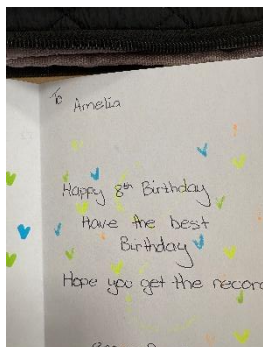 To Amelia
Happy 8th Birthday
Have the best
Birthday
Hope you get the record